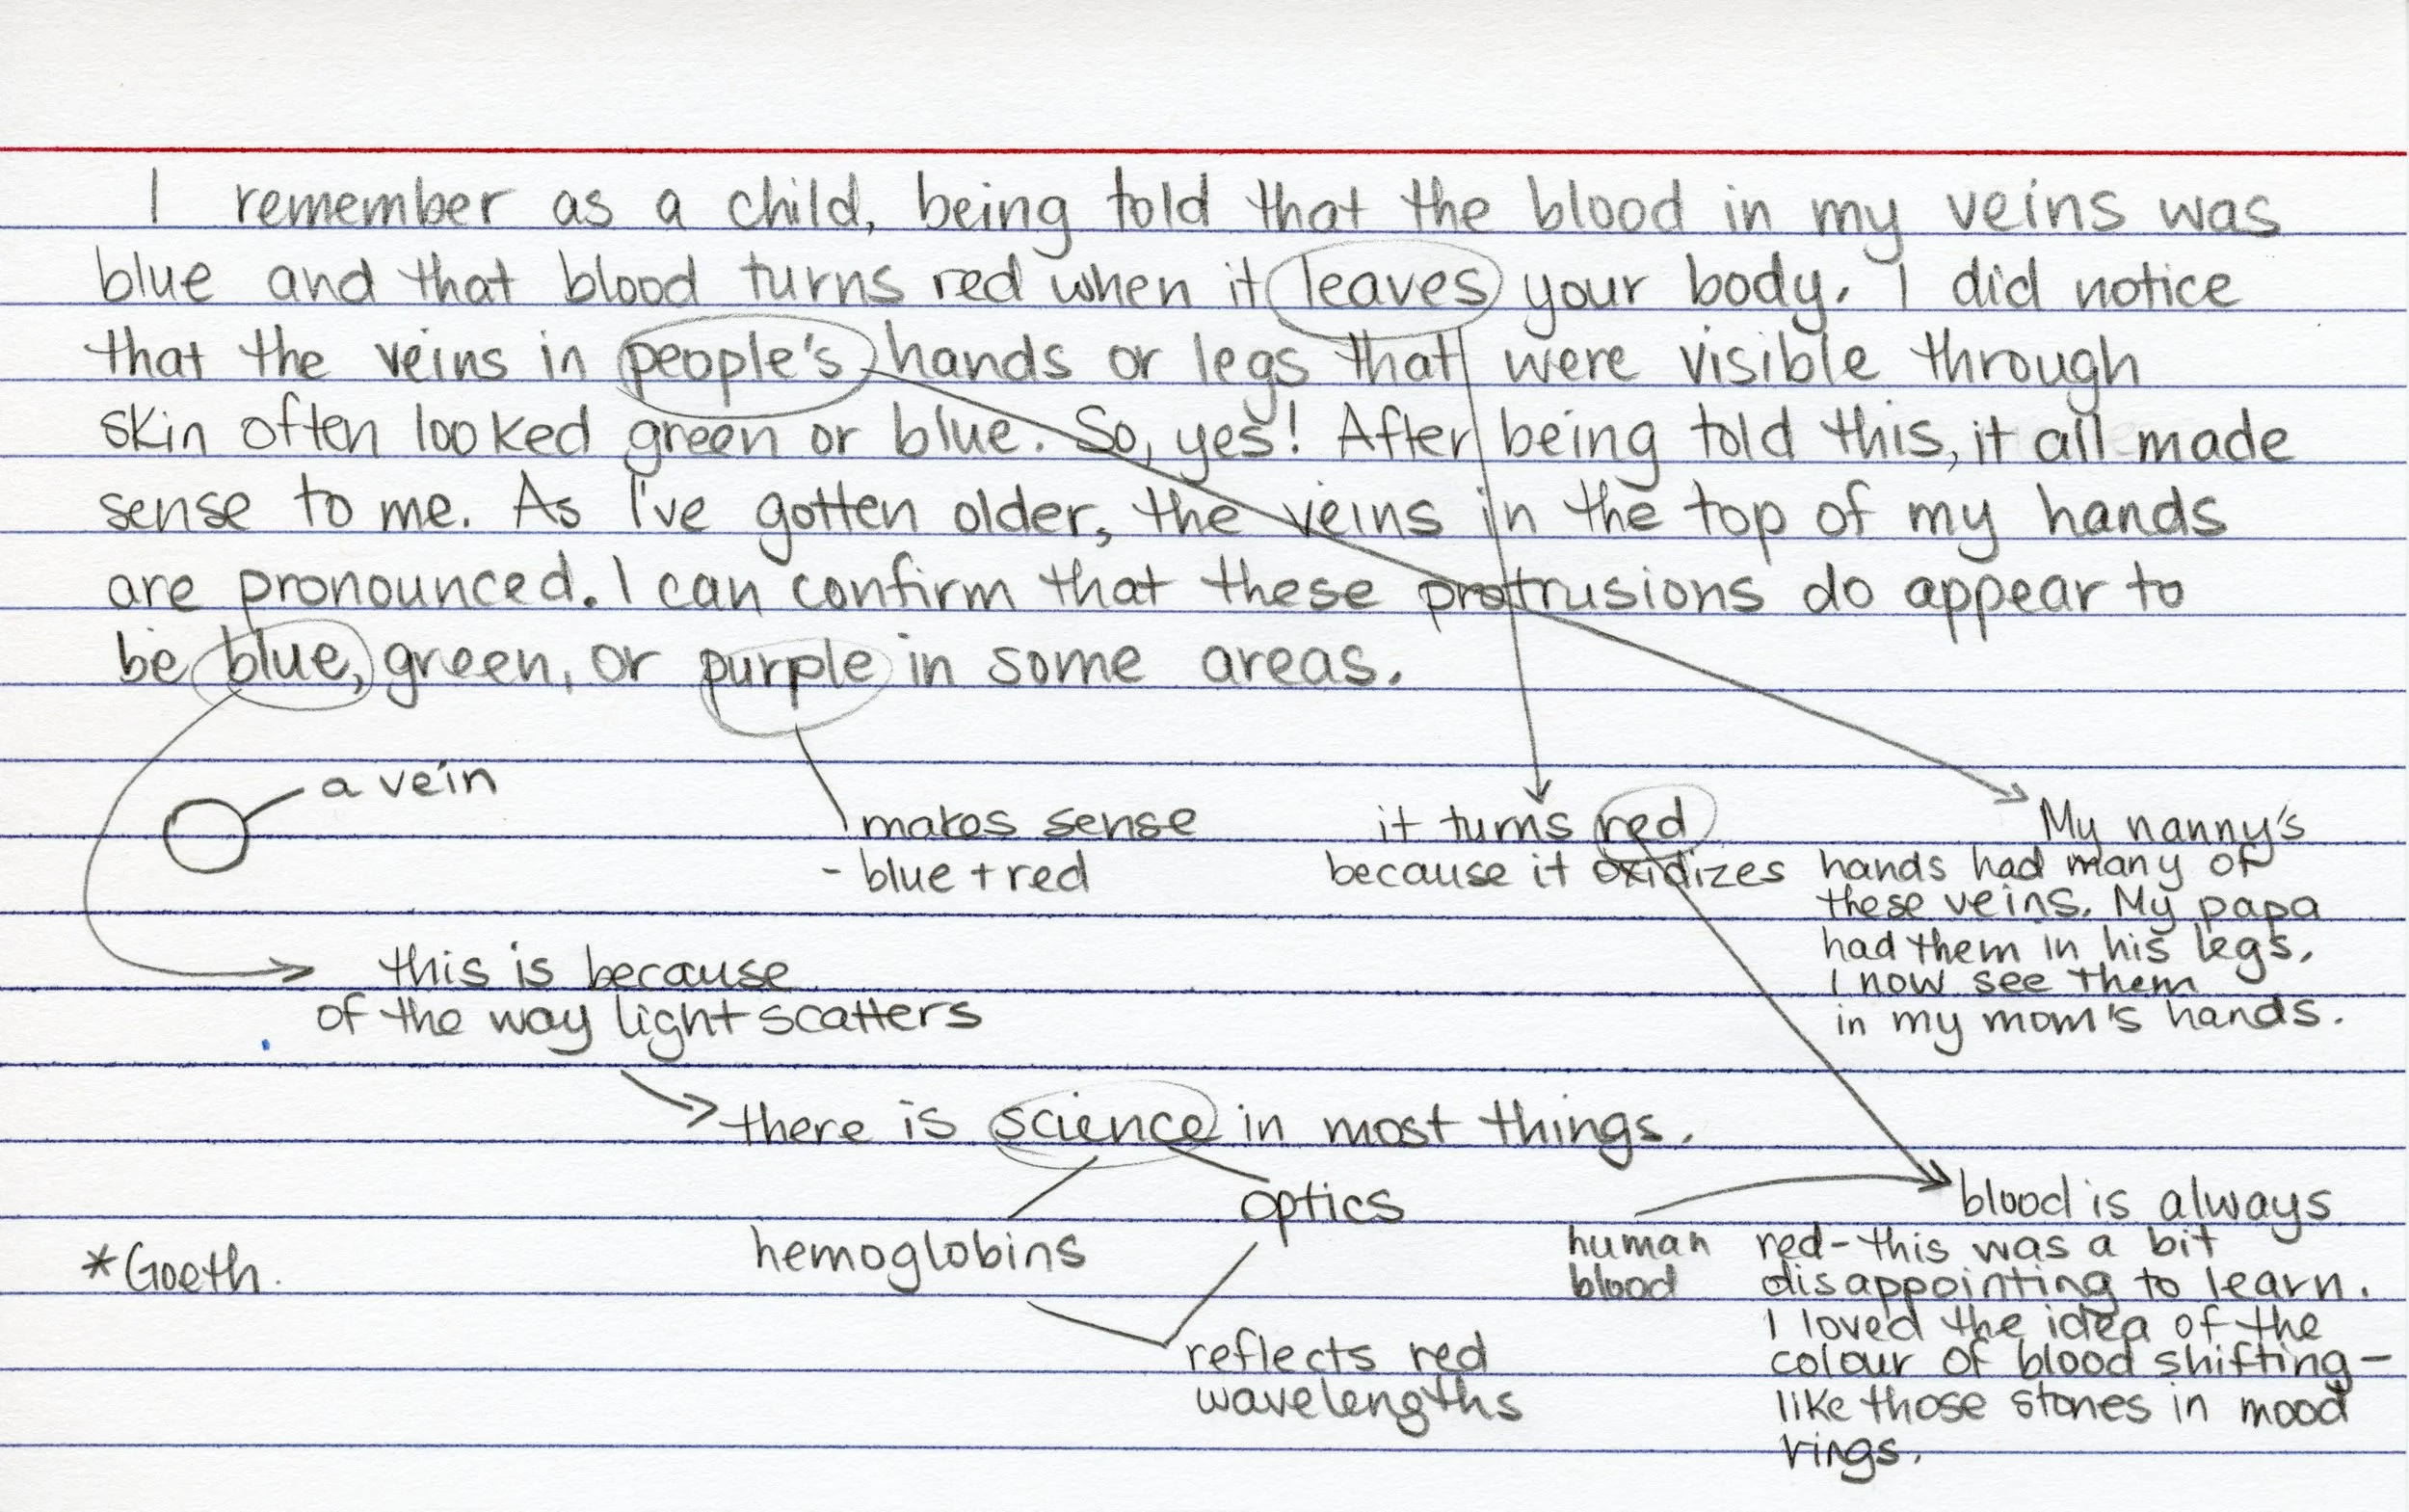 I remember as a child, being told that the blood in my veins was
blue and that blood turns red when it leaves your body. I did notice
that the veins in people's hands or legs that were visible through
skin often looked green or blue. So, yes! After being told this, it all made
sense to me. As I've gotten older, the veins in the top of my hands
are pronounced. I can confirm that these protrusions do appear to
be blue, green, or purple in some areas.
a vein
makes sense
- blue + red
it turns red
because it oxidizes
My nanny's
hands had many of
these veins. My papa
had them in his legs.
I now see them
in my mom's hands.
this is because
of the way light scatters
there is science in most things.
optics
hemoglobins
reflects red
wavelengths
human
blood
blood is always
red - this was a bit
disappointing to learn.
I loved the idea of the
colour of blood shifting -
like those stones in mood
rings.
*Goeth.